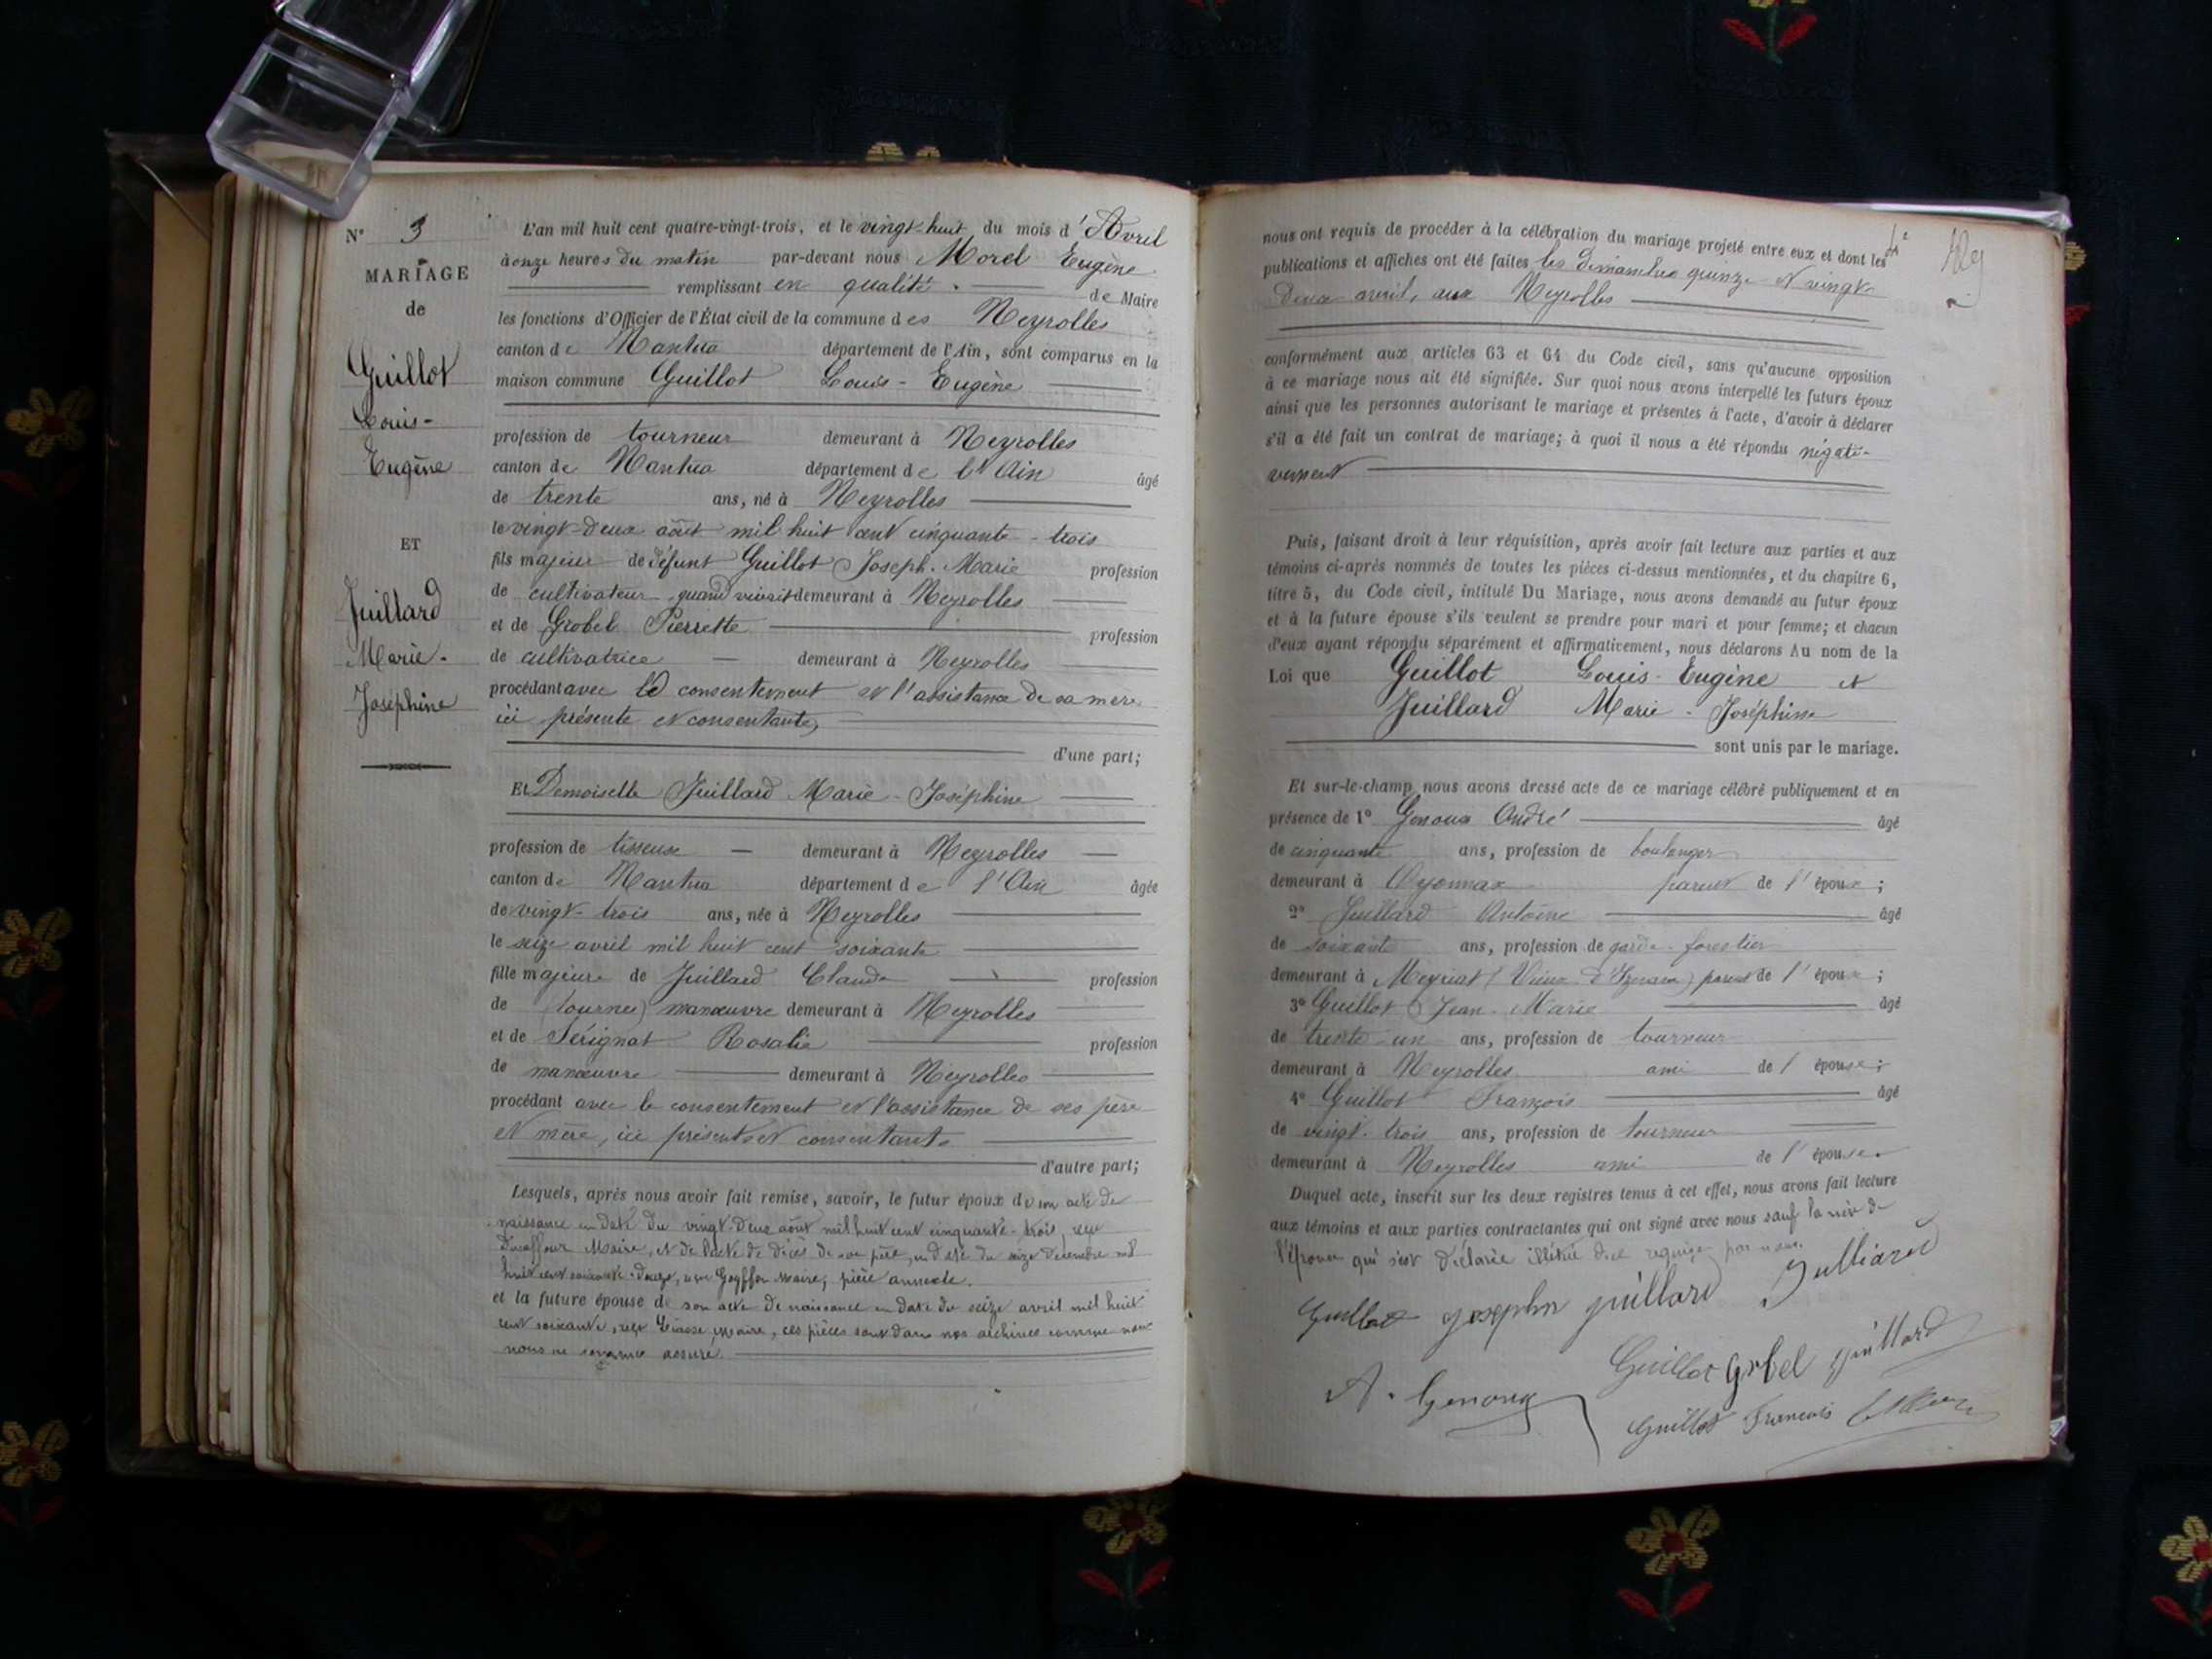 N° 3
MARIAGE
de
Guillot
Louis-
Eugène
ET
Juillard
Marie-
Joséphine
L'an mil huit cent quatre-vingt-trois, et le vingt-huit du mois d'Avril
à onze heures du matin par-devant nous Morel Eugène
remplissant en qualité de Maire
les fonctions d'Officier de l'État civil de la commune des Neyrolles
canton de Nantua département de l'Ain, sont comparus en la
maison commune Guillot Louis-Eugène
profession de tourneur demeurant à Neyrolles
canton de Nantua département de l'Ain âgé
de trente ans, né à Neyrolles
le vingt-deux août mil huit cent cinquante-trois
fils majeur de défunt Guillot Joseph-Marie profession
de cultivateur quand vivait demeurant à Neyrolles
et de Grobel Pierrette profession
de cultivatrice demeurant à Neyrolles
procédant avec le consentement et l'assistance de sa mère
ici présente et consentante,
d'une part;
Et Demoiselle Juillard Marie-Joséphine
profession de tisseuse demeurant à Neyrolles
canton de Nantua département de l'Ain âgée
de vingt-trois ans, née à Neyrolles
le seize avril mil huit cent soixante
fille majeure de Juillard Claude profession
de manœuvre demeurant à Neyrolles
et de Sérignat Rosalie profession
de manœuvre demeurant à Neyrolles
procédant avec le consentement et l'assistance de ses père
et mère, ici présents et consentants
d'autre part;
Lesquels, après nous avoir fait remise, savoir, le futur époux de son acte de
naissance en date du vingt-deux août mil huit cent cinquante-trois, reçu
Maire, et de l'acte de décès de son père, en date du seize décembre mil
huit cent soixante-douze, Maire, pièce annexée.
et la future épouse de son acte de naissance en date du seize avril mil huit
cent soixante, reçu Maire, ces pièces sont dans nos archives comme nous
nous en sommes assuré.
nous ont requis de procéder à la célébration du mariage projeté entre eux et dont les
publications et affiches ont été faites les dimanches quinze et vingt-
deux avril, aux Neyrolles
conformément aux articles 63 et 64 du Code civil, sans qu'aucune opposition
à ce mariage nous ait été signifiée. Sur quoi nous avons interpellé les futurs époux
ainsi que les personnes autorisant le mariage et présentes à l'acte, d'avoir à déclarer
s'il a été fait un contrat de mariage; à quoi il nous a été répondu négati-
vement
Puis, faisant droit à leur réquisition, après avoir fait lecture aux parties et aux
témoins ci-après nommés de toutes les pièces ci-dessus mentionnées, et du chapitre 6,
titre 5, du Code civil, intitulé Du Mariage, nous avons demandé au futur époux
et à la future épouse s'ils veulent se prendre pour mari et pour femme; et chacun
d'eux ayant répondu séparément et affirmativement, nous déclarons Au nom de la
Loi que Guillot Louis-Eugène et
Juillard Marie-Joséphine
sont unis par le mariage.
Et sur-le-champ nous avons dressé acte de ce mariage célébré publiquement et en
présence de 1° Genoux André âgé
de cinquante ans, profession de boulanger
demeurant à Oyonnax parent de l'époux;
2° Juillard Antoine âgé
de soixante ans, profession de garde-forestier
demeurant à Meyriat (Vieu-d'Izenave) parent de l'épouse;
3° Guillot Jean-Marie âgé
de trente-un ans, profession de tourneur
demeurant à Neyrolles ami de l'épouse;
4° Guillot François âgé
de vingt-trois ans, profession de tourneur
demeurant à Neyrolles ami de l'épouse.
Duquel acte, inscrit sur les deux registres tenus à cet effet, nous avons fait lecture
aux témoins et aux parties contractantes qui ont signé avec nous sauf la mère de
l'épouse qui s'est déclarée illétrée de ce requise par nous.
Guillot Josephin Juillard Julliard
Guillot Grobel Juillard
A. Genoux
Guillot François